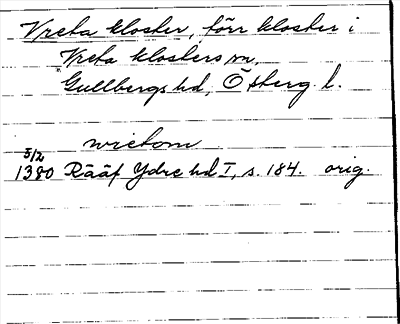 Vreta kloster, förr kloster i
Vreta klosters sn,
Gullbergs hd, Östberg. l.
wretom
5/2
1380 Rääf Ydre hd I, s. 184. orig.